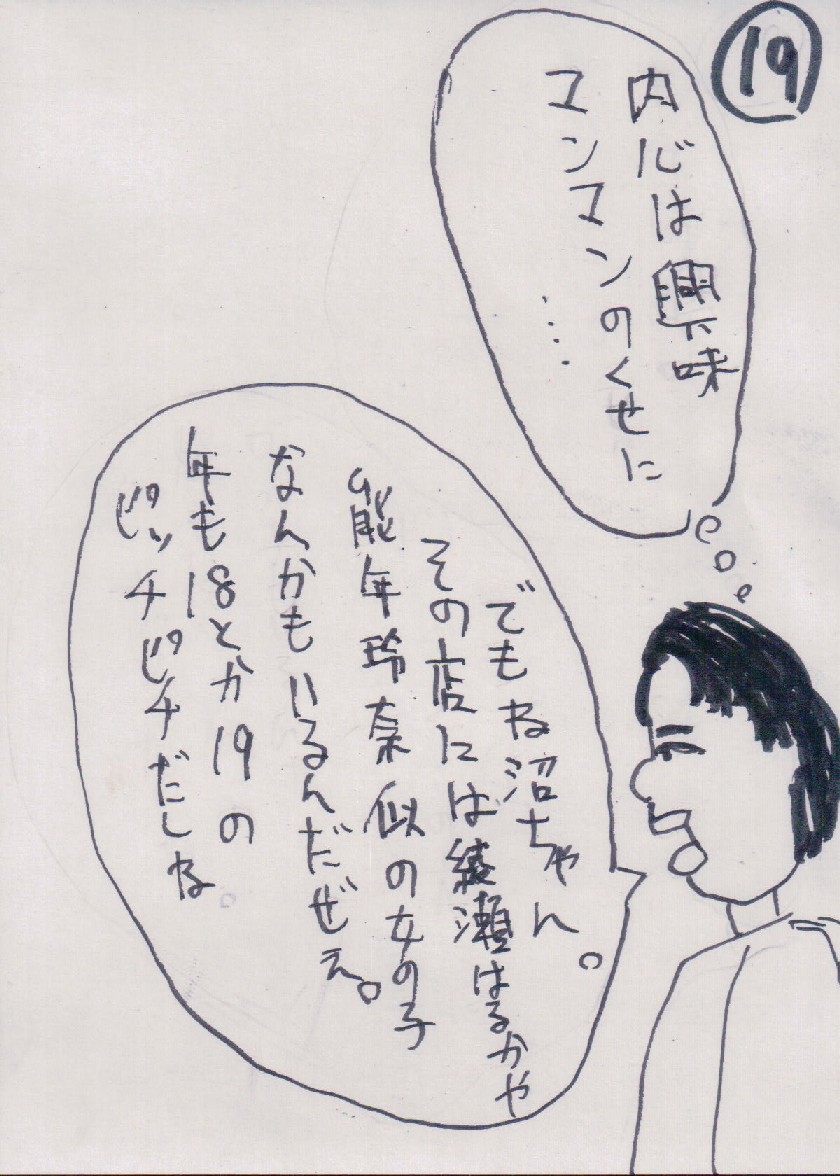 19
内心は興味
マンマンのくせに
....
でもね沼ちゃん。
その店には綾瀬はるかや
能年玲奈似の女の子
なんかもいるんだぜえ。
年も18とか19の
ピッチピチだしね。